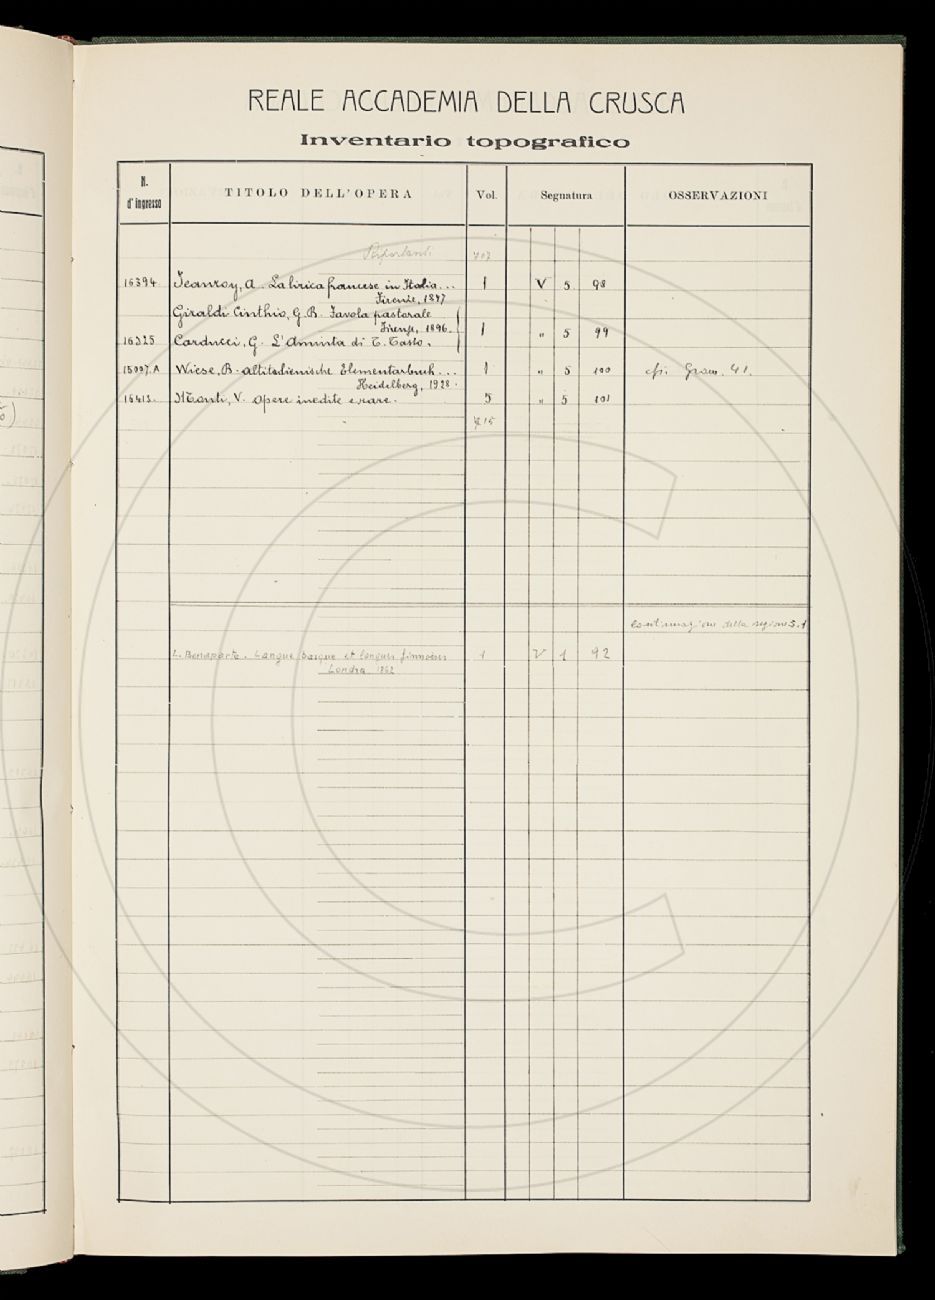 REALE ACCADEMIA DELLA CRUSCA
Inventario topografico
N. d'ingresso TITOLO DELL'OPERA Vol. Segnatura OSSERVAZIONI
Riportanti
16394 Jeanroy, A. La lirica francese in Italia... 1 V 5 98
Firenze, 1897
Giraldi Cinthio, G. B. Favola pastorale
Firenze, 1896. 1 " 5 99
16325 Carducci, G. L'Aminta di T. Tasso.
15007.A Wiese, B. altitalienische Elementarbuch... 1 " 5 100 cfr. Gram. 41.
Heidelberg, 1928.
16413. Monti, V. Opere inedite e rare. 5 " 5 101
715
Continuazione della sezione 5.1
L. Bonaparte. Langue basque et langues finnoises 1 V 1 92
Londra 1862